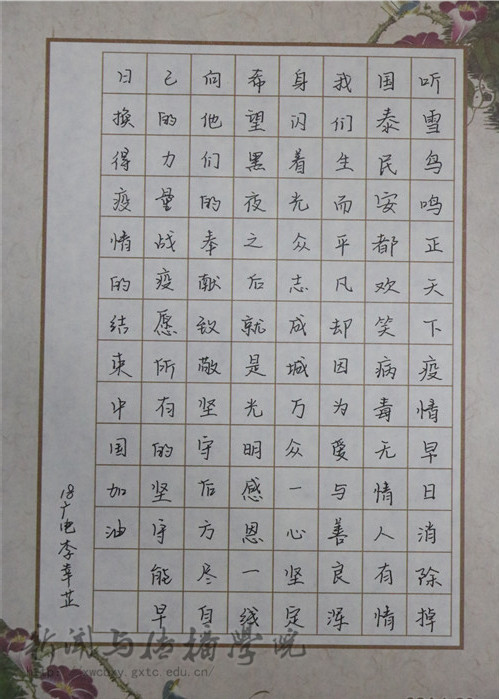 听雪鸟鸣正天下疫情早日消除掉
国泰民安都欢笑病毒无情人有情
我们生而平凡却因为爱与善良浑
身闪着光众志成城万众一心坚定
希望黑夜之后就是光明感恩一线
向他们的奉献致敬坚守后方尽自
己的力量战疫愿所有的坚守能早
日换得疫情的结束中国加油
18广电李幸芷
新闻与传播学院
xwcbxy.gxtc.edu.cn/